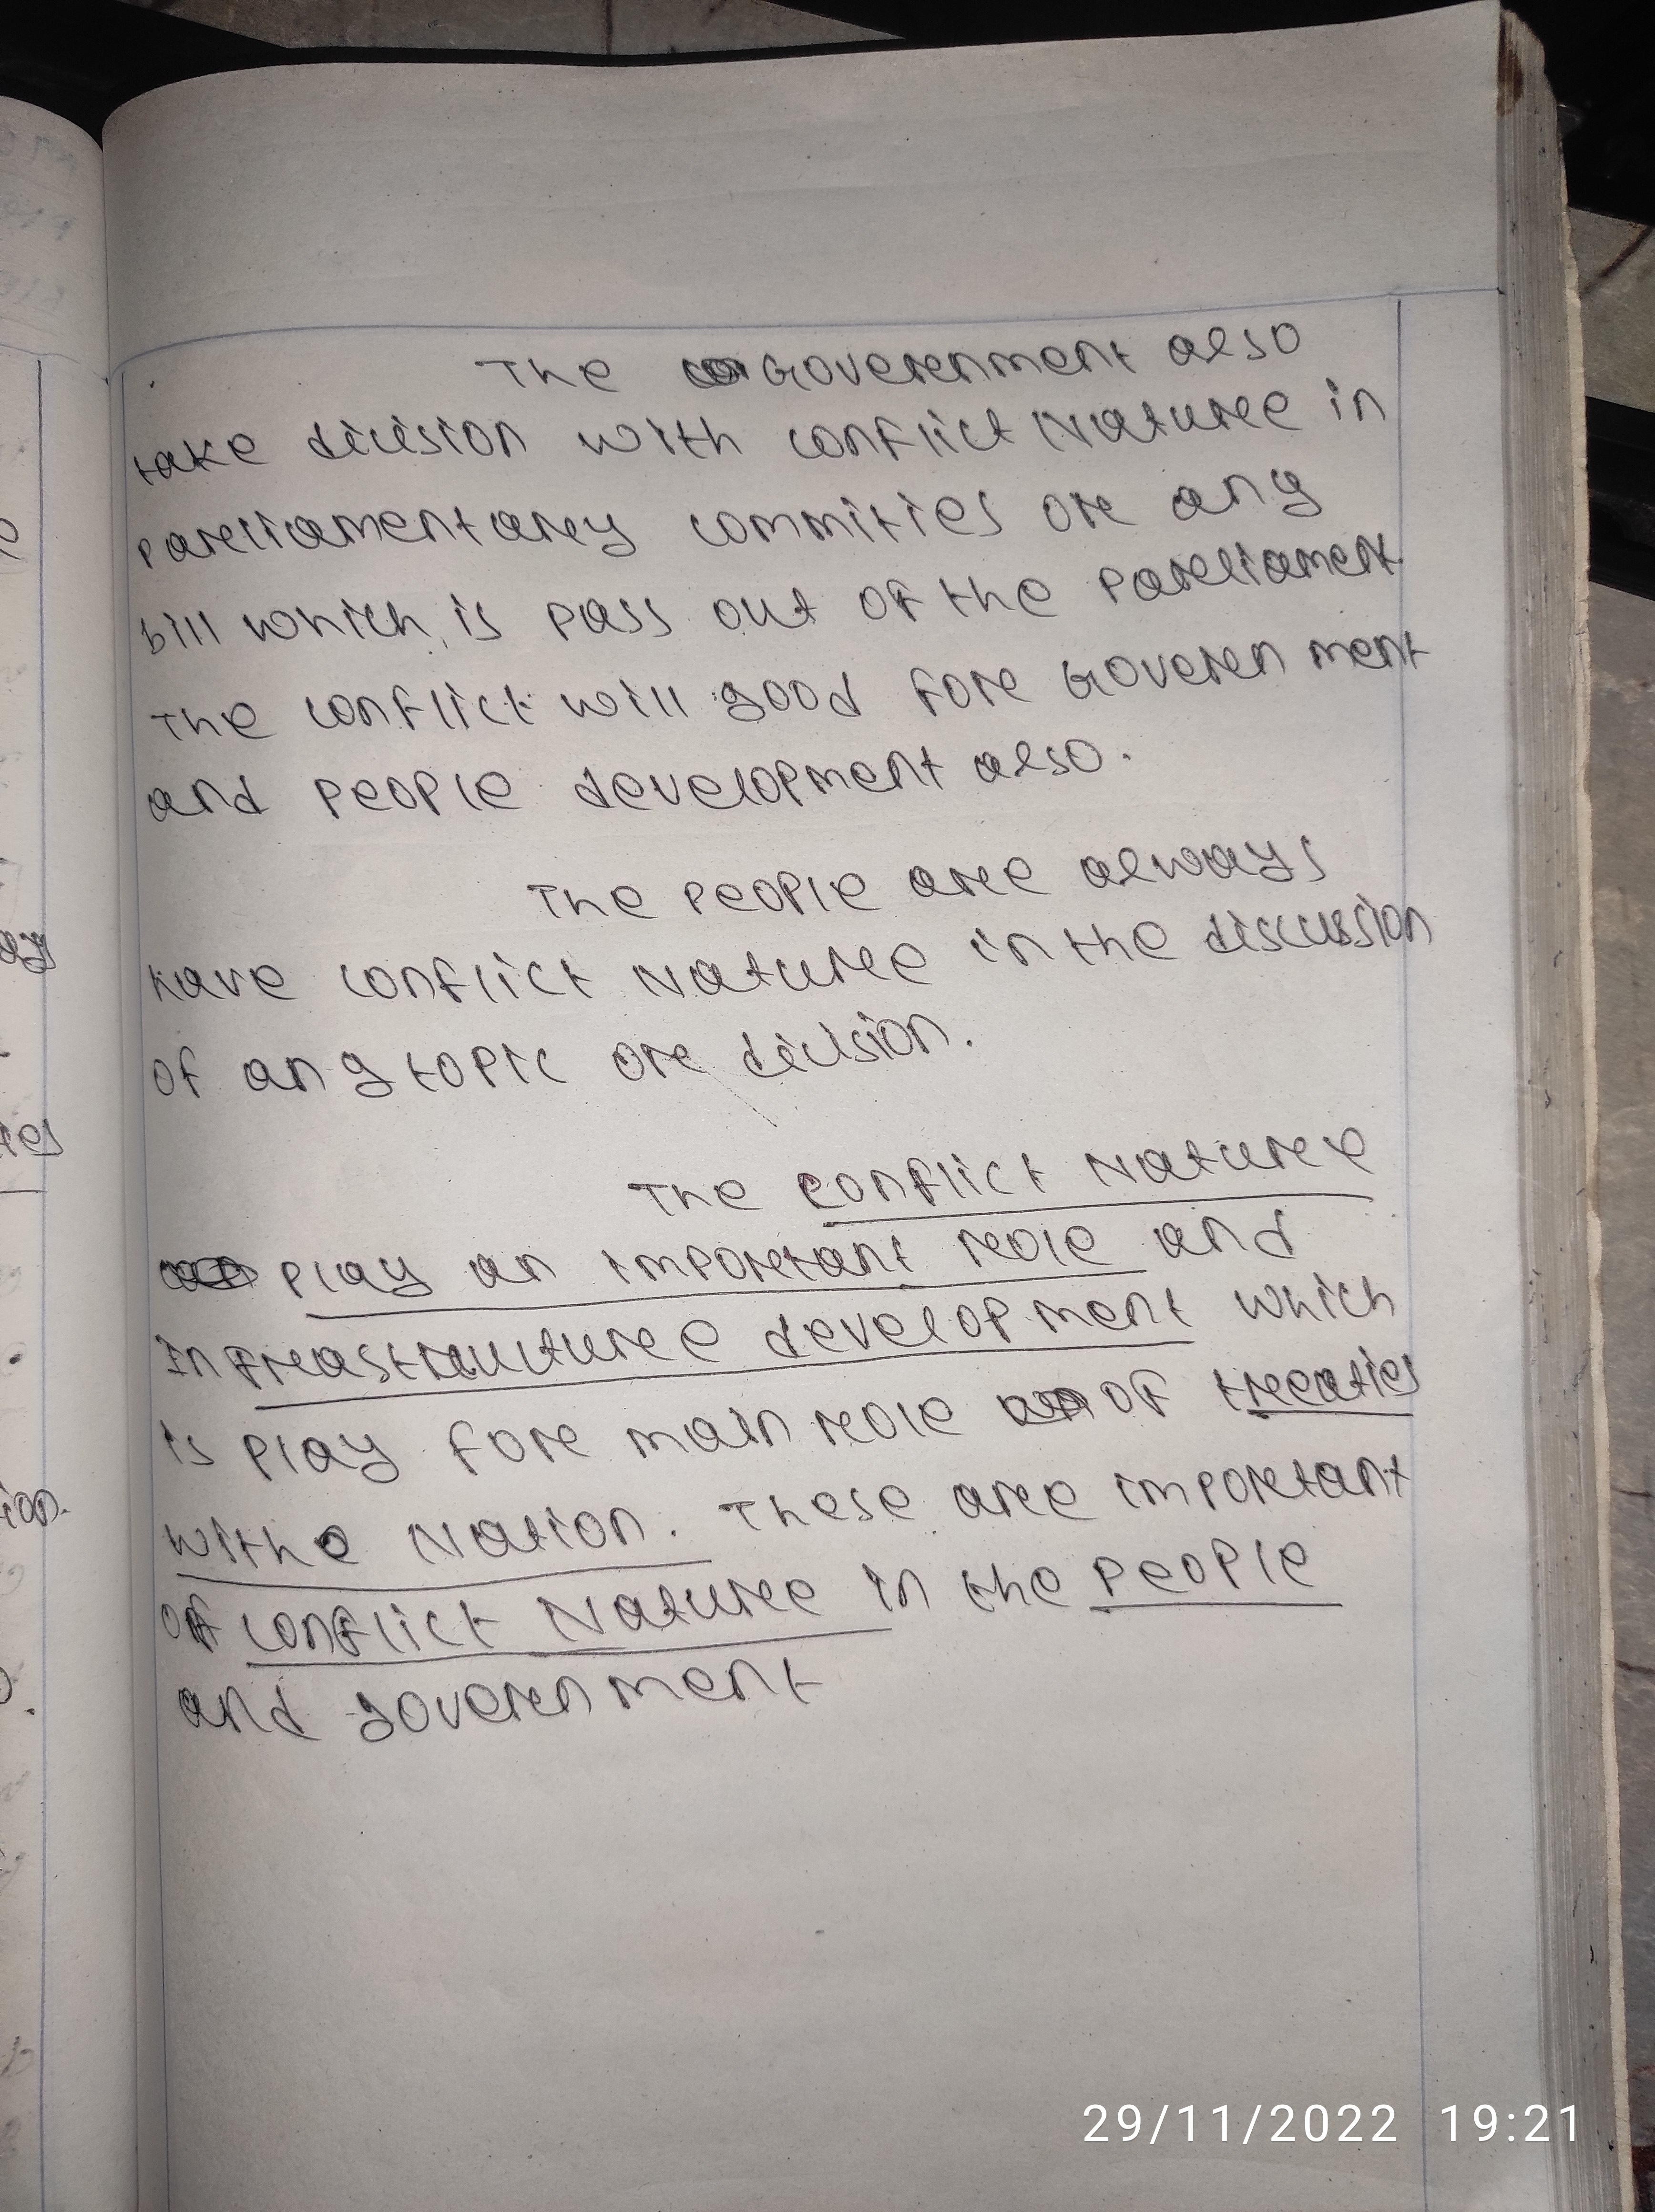 The Government also
take dicision with conflict Nature in
parliamentary commities or any
bill which is pass out of the Parliament
The conflict will good for Government
and people development also.
The people are always
have conflict Nature in the discussion
of any topic or dicision.
The conflict Nature
play an important role and
Infrastructure development which
is play for main role of treaties
with Nation. These are important
of conflict Nature in the people
and government
29/11/2022 19:21